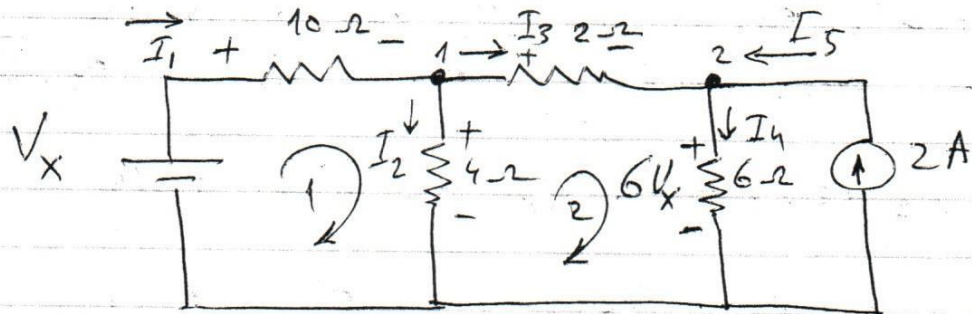 I₁ + 10 Ω - 1 I₃ + 2 Ω - 2 I₅
Vₓ 1 I₂ + 4 Ω - 2 6Vₓ + 6 Ω - I₄ 2 A